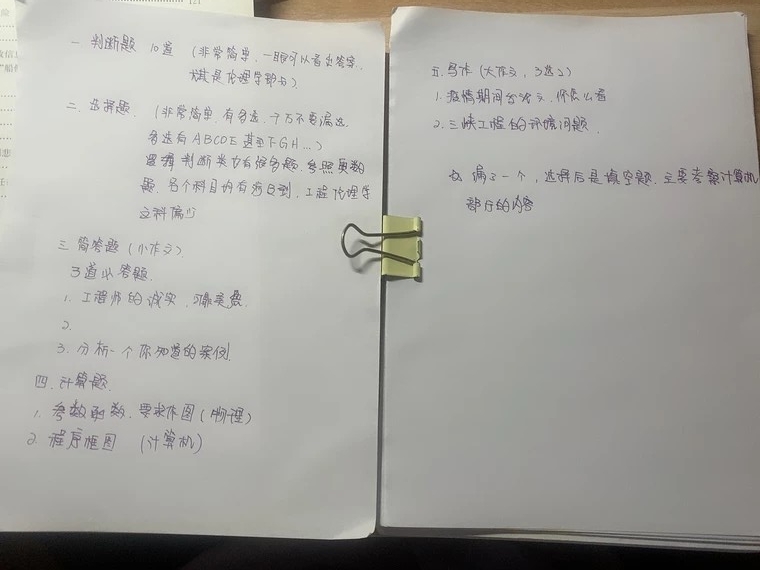 121
一 判断题 10道 (非常简单,一眼可以看出答案,
尤其是伦理学部分)
二、选择题. (非常简单,有多选,千万不要漏选
多选有ABCDE甚至FGH...)
逻辑判断类也有很多题,参照奥数
题.各个科目均有涉及到,工程伦理学
文科偏少
三 简答题(小作文).
3道必答题.
1. 工程师的诚实,可靠
2.
3. 分析一个你知道的案例.
四.计算题.
1. 参数函数.要求作图(物理)
2. 程序框图 (计算机)
五.写作(大作文,3选2)
1.疫情期间
,你怎么看
2.三峡工程的环境问题.
漏了一个,选择后是填空题.主要考察计算机
部分的内容